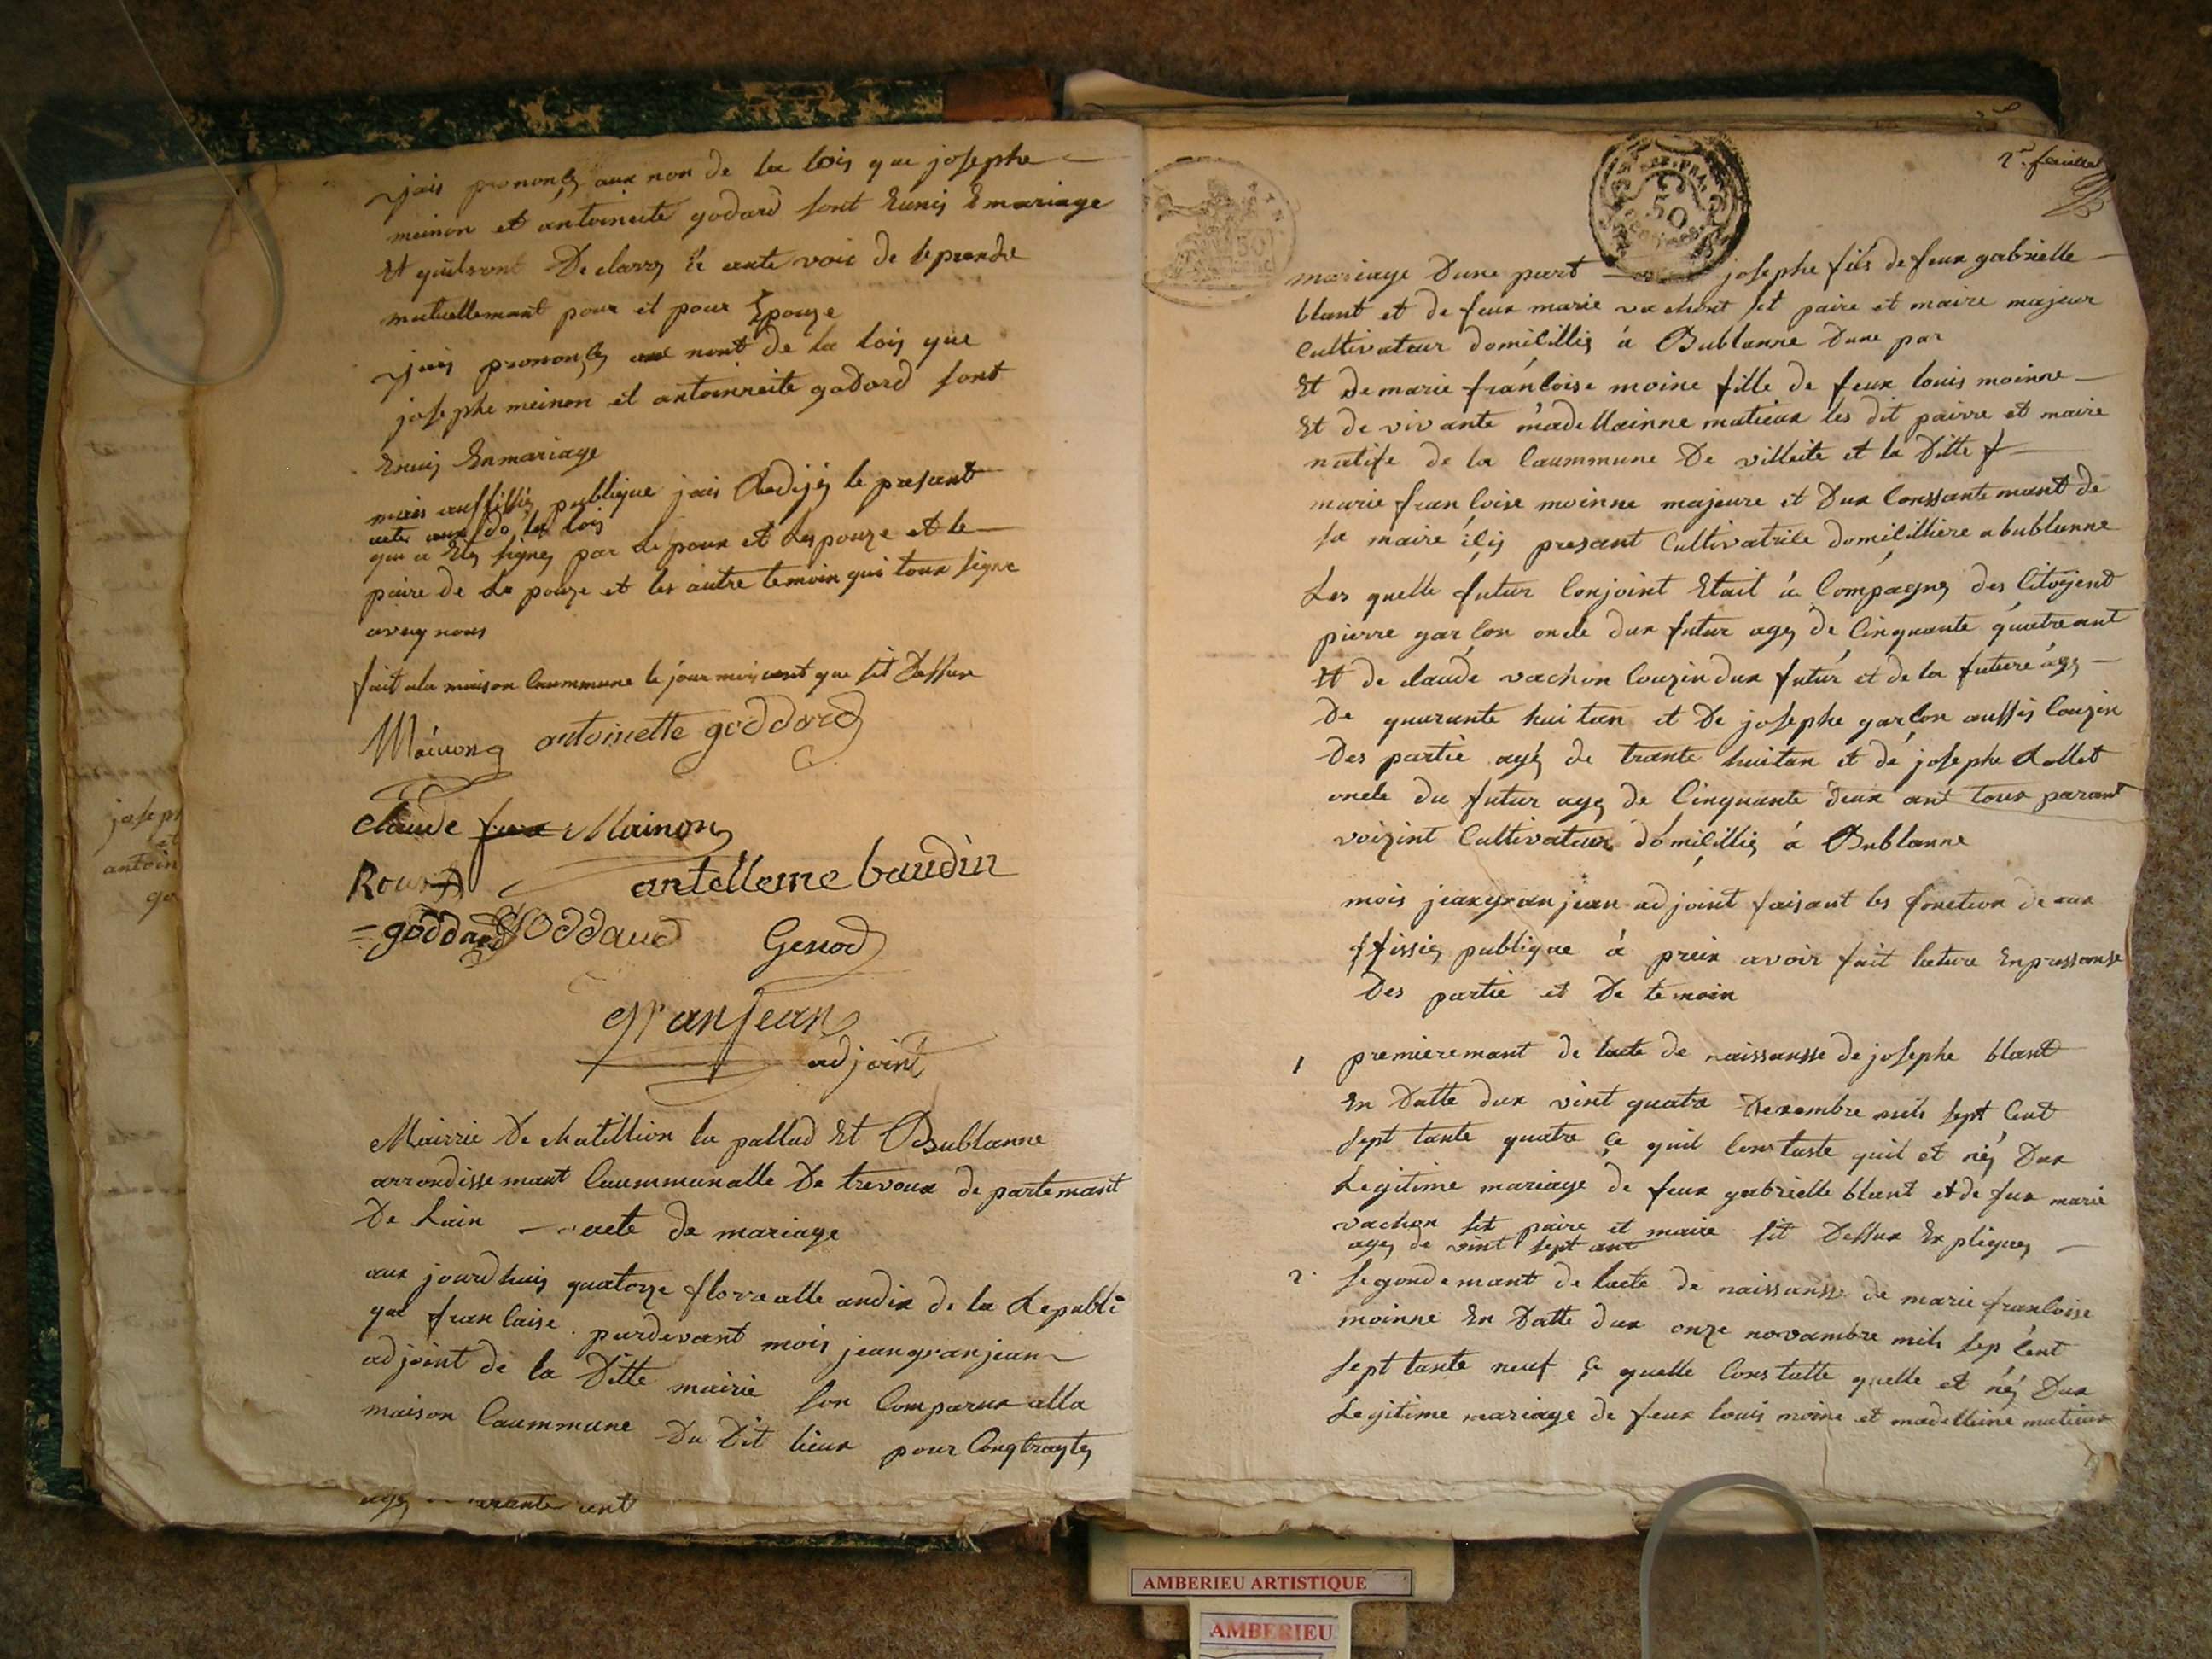 jais prononcé aux non de la lois que josephe
meinon et antoineite godard sont Eunis E mariage
Et quil sont De clarés à ante voic de se prendre
mutuellemant pour et pour Epouze
jais prononcés aux nont de la lois que
josephe meinon et antoinneite godard sont
Eunis En mariage
mois auffissiés publique jais Redijés le presant
acte aux do la lois
qui a Etés signés par Lepoux et Lespouze et le
paire de La pouze et les autre temoin qui toux signe
avecq nous
fait ala maison Caummune le jour mois et ant que sit Dessux
Mainong antoinette goddard
Claude Mainon
Roux antelleme baudin
goddard Goddaud Genod
granjean
adjoint
Mairrie De chatillion la pallud Et Bublanne
arrondissemant Caummunalle De trevoux departemant
De Lain acte de mariage
aux jourdhuis quatorze floraalle andix de la Republi
que francaise pardevant mois jeangranjean
adjoint de la Ditte mairie son Comparux alla
maison Caummune Du Dit lieux pour Conqtraqtés
agés ant
2e feuillet
50
mariage Dune part josephe fils de feux gabrielle
blant et de feux marie vachont set paire et maire majeur
Cultivateur domicilliés à Bublanne Dune par
Et De marie francoise moine fille de feux louis moinne
Et de vivante madellainne matieux les dit pairre et maire
natife de la Caummune De villeite et la Ditte f
marie francoise moinne majeure et Dux Conssantemant de
sa maire icis presant Cultivatrice domicilliere a bublanne
Les quelle futur Conjoint Etait à Compagnés des Citoyent
pierre garcon oncle dux futur agés de Cinquante quatre ant
Et de claude vachon Couzin dux futur et de la future agés
De quarante huitan et De josephe garcon aussis Couzin
Des partie agés de trante huitan et de josephe Rollet
oncle du futur agés de Cinquante deux ant toux parant
voizint Cultivateur domicilliés à Bublanne
mois jeangranjean adjoint faisant les fonction de aux
ffissiés publique à preix avoir fait lecture En pressansse
Des partie et De temoin
1 premieremant de lacte de naissansse de josephe blant
En Datte dux vint quatre Desembre mils sept Cent
sept tante quatre ce quil Constaste quil et nés Dux
Legitime mariage de feux gabrielle blant et de fux marie
vachon set paire et maire sit Dessux Expliqués
agés de vint sept ant
2 segondemant de lacte de naissansse de marie francoise
moinne En Datte dux onze novambre mils sep Cent
sept tante neuf ce quelle Constatte quelle et nés Dux
Legitime mariage de feux louis moine et madelleine matieux
AMBERIEU ARTISTIQUE
AMBERIEU